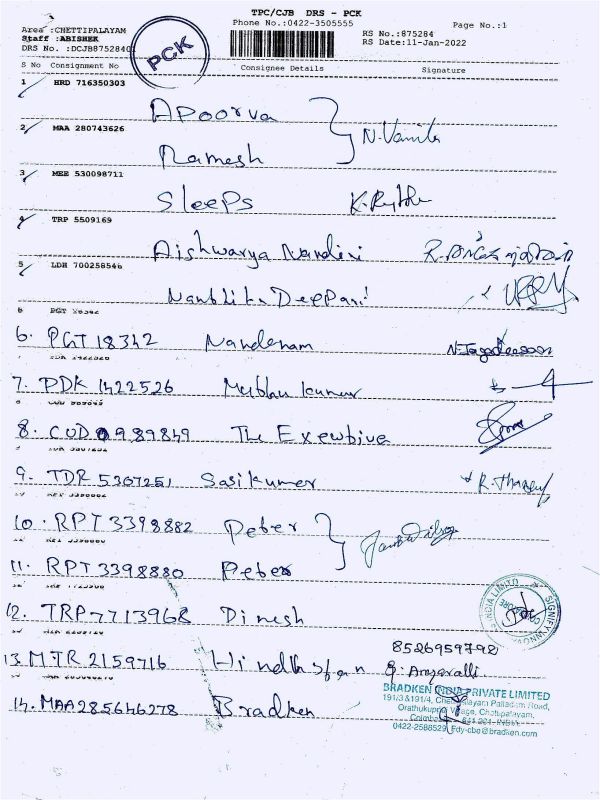 TPC/CJB DRS - PCK
Phone No.:0422-3505555
Page No.:1
Area :CHETTIPALAYAM
Staff :ABISHEK
DRS No. :DCJB8752840
PCK
RS No.:875284
RS Date:11-Jan-2022
S No Consignment No Consignee Details Signature
1 HRD 716350303
Apoorva
2 MAA 280743626 N.Vanita
Ramesh
3 MEE 530098711
Sleeps
4 TRP 5509169
Aishwarya Nandini
5 LDH 700258546
Nanbhitn Deepan
6. PGT 18342 Nandenam N.Jagadeesan
7. PDK 1422526 Muthu kumar
8. COD 0989849 The Executive
9. TDR 5307251 Sasikumar R.
10. RPT 3398882 Peter
11. RPT 3398880 Peter
12. TRP 7713968 Dinesh
INDIA LIMITED
SIGNIFY
8526959792
13. MTR 2159716 Hindhstan
14. MAA 285646278 Bradken
BRADKEN INDIA PRIVATE LIMITED
191/3 &191/4, Palladam Road,
Orathukuppai Village, Chettipalayam,
Coimbatore 641 201. INDIA
0422-2588529, Fdy-cbe@bradken.com